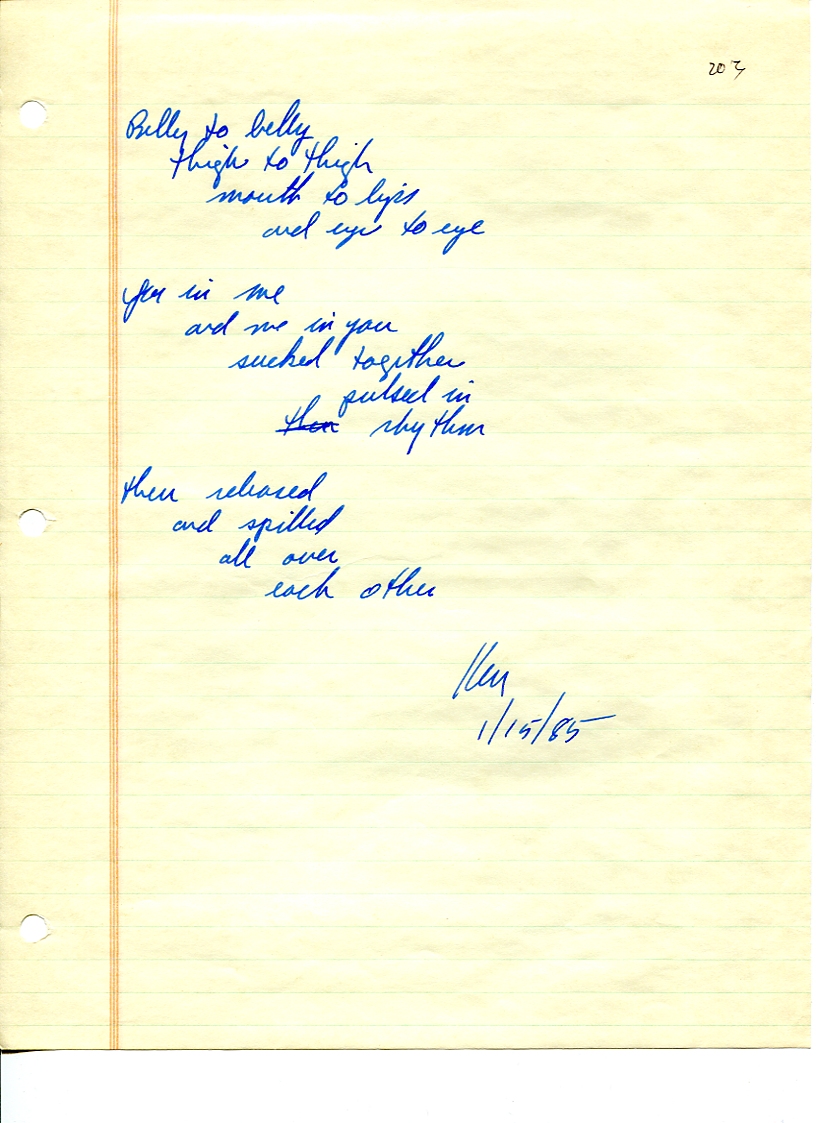 203
Belly to belly
thigh to thigh
mouth to lips
and eye to eye
you in me
and me in you
sucked together
pulsed in
then rhythm
then released
and spilled
all over
each other
Ken
1/15/85